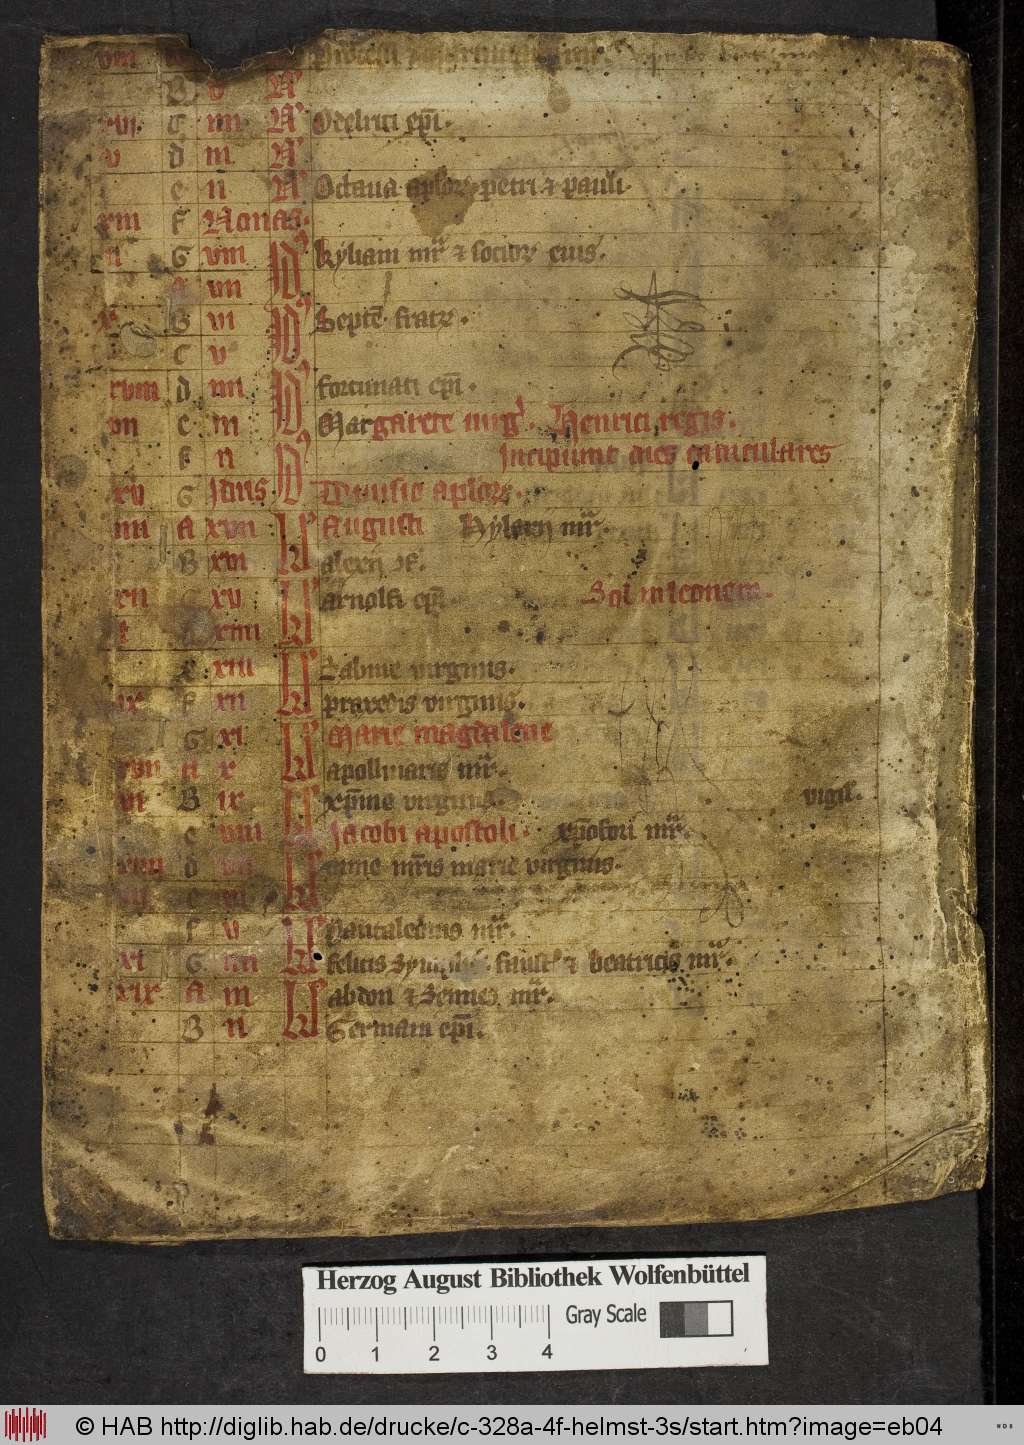 viii
B v N
xvi C iiii N Odelrici epi.
v d iii N
e ii N Octava aplor petri & pauli.
xiii f Nonas.
ii G viii Id kyliani mr & socior eius.
A vii
x B vi Id Septe fratr.
C v
xviii d iiii Id fortunati epi.
vii e iii Margarete virg. Henrici regis.
f ii Id Incipiunt dies caniculares
xv G Idus Divisio aplor.
iiii A xvii kl Augusti Hylarii mr.
B xvi alexii cf.
xii C xv kl arnolfi epi. Sol in leonem.
xiiii
e xiii kl Sabine virginis.
ix f xii praxedis virginis.
G xi kl Marie magdalene
xvii A x apollinaris mr.
vi B ix kl xpine virginis. vigil.
c viii Jacobi apostoli. xpofori mr.
d vii kl anne mris marie virginis.
e vi
f v kl Pantaleonis mr.
xi G iiii felicis Symplicii faust & beatricis mr.
xix A iii kl abdon & Sennes mr.
B ii Germani epi.
Herzog August Bibliothek Wolfenbüttel
Gray Scale
0 1 2 3 4
© HAB http://diglib.hab.de/drucke/c-328a-4f-helmst-3s/start.htm?image=eb04